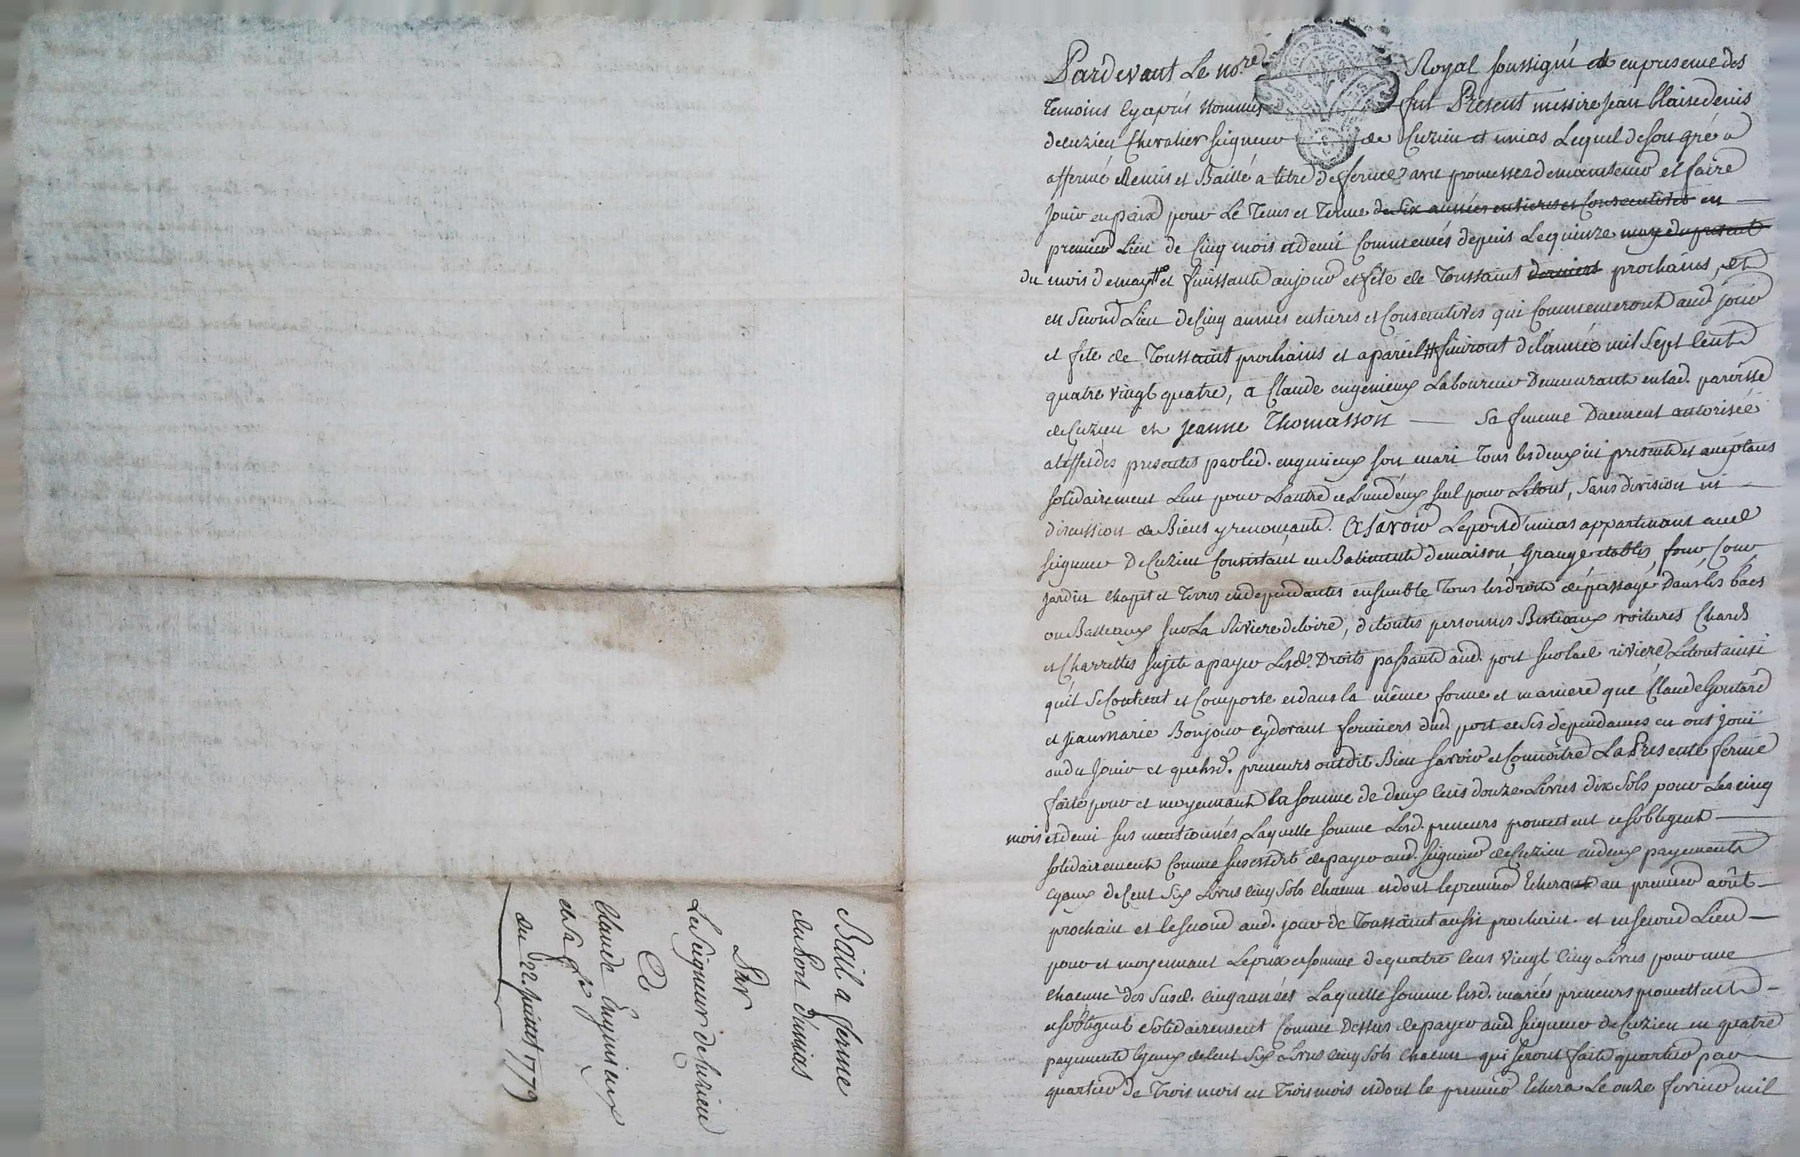 Pardevant Le no.re Royal soussigné et en presence des
temoins cy aprés nommés fut Present messire jean blaise denis
decuzieu Chevalier seigneur de Cuzieu et unias Lequel de son gré a
affermé Remis et Baillé a titre de ferme avec promesse de maintenir et faire
jouir en paix pour Le Tems et Terme de six années entieres et Consecutives en
premier Lieu de Cinq mois et demi Commencés depuis Le quinze may du present
du mois de may et finissants au jour et fête de Toussaint derniers prochains, et
en second Lieu de Cinq années entieres et Consecutives qui Commenceront aud. jour
et fete de Toussaint prochains et a pareil finiront de l'année mil Sept Cent
quatre vingt quatre, a Claude engenieux Laboureur Demeurant en lad. paroisse
de Cuzieu et Jeanne Thomasson sa femme Duement autorisée
a l'effet des presentes par led. engenieux son mari Tous les deux ici presents et acceptans
solidairement L'un pour L'autre et L'un d'eux seul pour Le tout, sans division ni
discussion de Biens y renonçants. A savoir Le port d'unias appartenant aud.
seigneur De Cuzieu Consistant en Batiments de maison Grange etables four Cour
jardin chapit et Terres en dependantes ensemble Tous les droits de passage Dans les bacs
ou Batteaux sur La Riviere de loire, de toutes personnes Bestiaux voitures Chards
et Charrettes sujets a payer Lesd. Droits passants aud. port sur lad. riviere Le tout ainsi
qu'il se Contient et Comporte et dans la même forme et maniere que Claude Goutard
et jeanmarie Bonjour cy devant fermiers dud. port et ses dependances en ont joui
ou du jouir et que lesd. preneurs ont dit Bien savoir et Connoitre La Presente ferme
faite pour et moyennant la somme de deux Cens douze Livres dix Sols pour Les cinq
mois et demi sus mentionnés Laquelle somme Lesd. preneurs promettent et s'obligent
solidairement Comme sus est dit de payer aud. seigneur de Cuzieu en deux payements
egaux de Cent Six Livres Cinq Sols Chacun et dont le premier Echera au premier août
prochain et le second aud. jour de Toussaint aussi prochain. et en second Lieu
pour et moyennant Le prix et somme de quatre Cens Vingt Cinq Livres pour une
chacune des Susd. Cinq années Laquelle somme lesd. mariés preneurs promettent
et s'obligent solidairement Comme Dessus de payer aud. seigneur de Cuzieu en quatre
payements egaux de Cent Six Livres Cinq Sols Chacun qui seront faits quartier par
quartier de Trois mois en Trois mois et dont le premier Echera Le onze fevrier mil
Bail a ferme
du Port d'unias
Par
Le Seigneur de Cuzieu
A
Claude Engenieux
et sa f.e
du 22. juillet 1779